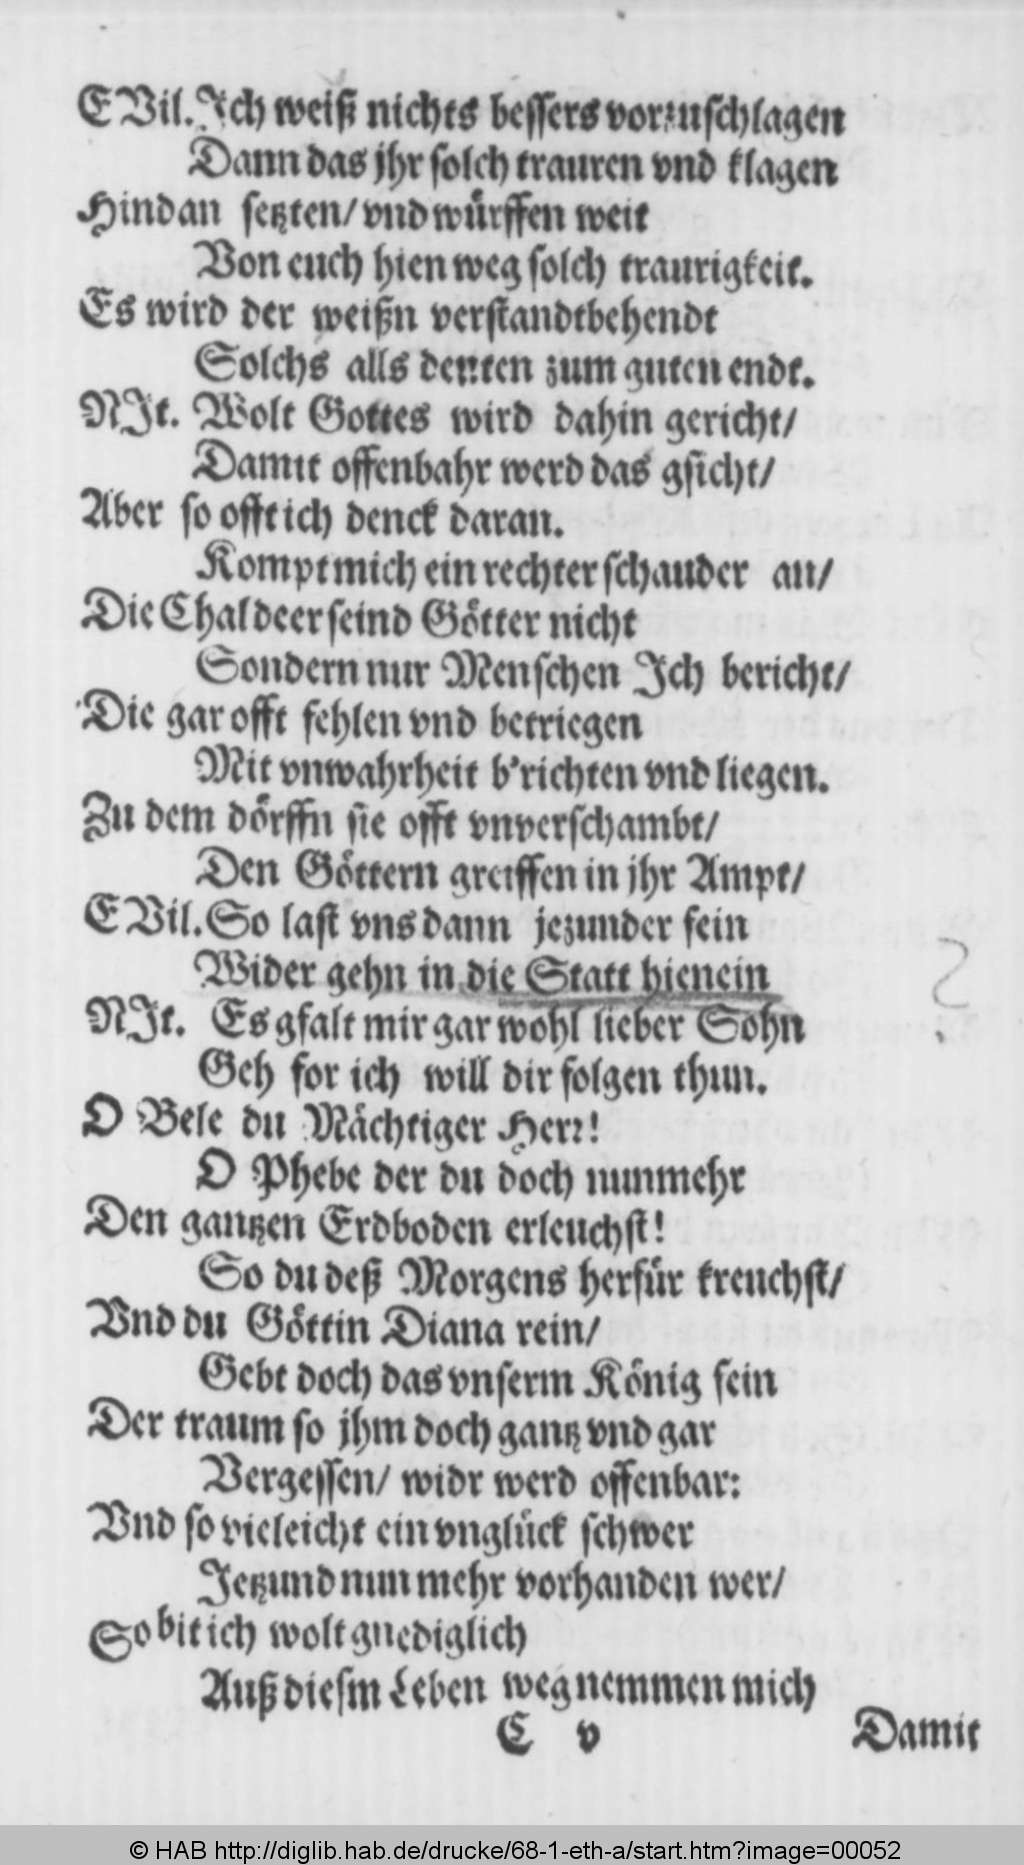 EVil. Ich weiß nichts bessers vorzuschlagen
Dann das jhr solch trauren vnd klagen
Hindan setzten/ vnd würffen weit
Von euch hien weg solch traurigkeit.
Es wird der weißn verstandt behendt
Solchs alls denten zum guten endt.
NIt. Wolt Gottes wird dahin gericht/
Damit offenbahr werd das gsicht/
Aber so offt ich denck daran.
Kompt mich ein rechter schauder an/
Die Chaldeer seind Götter nicht
Sondern nur Menschen Ich bericht/
Die gar offt fehlen vnd betriegen
Mit vnwahrheit b'richten vnd liegen.
Zu dem dörffn sie offt vnverschambt/
Den Göttern greiffen in jhr Ampt/
EVil. So last vns dann jezunder fein
Wider gehn in die Statt hienein
NIt. Es gfalt mir gar wohl lieber Sohn
Geh for ich will dir folgen thun.
O Bele du Mächtiger Herr!
O Phebe der du doch nunmehr
Den gantzen Erdboden erleuchst!
So du deß Morgens herfür kreuchst/
Vnd du Göttin Diana rein/
Gebt doch das vnserm König fein
Der traum so jhm doch gantz vnd gar
Vergessen/ widr werd offenbar:
Vnd so vieleicht ein vnglück schwer
Jetzund nun mehr vorhanden wer/
So bit ich wolt gnediglich
Auß diesm Leben weg nemmen mich
C v Damit
© HAB http://diglib.hab.de/drucke/68-1-eth-a/start.htm?image=00052